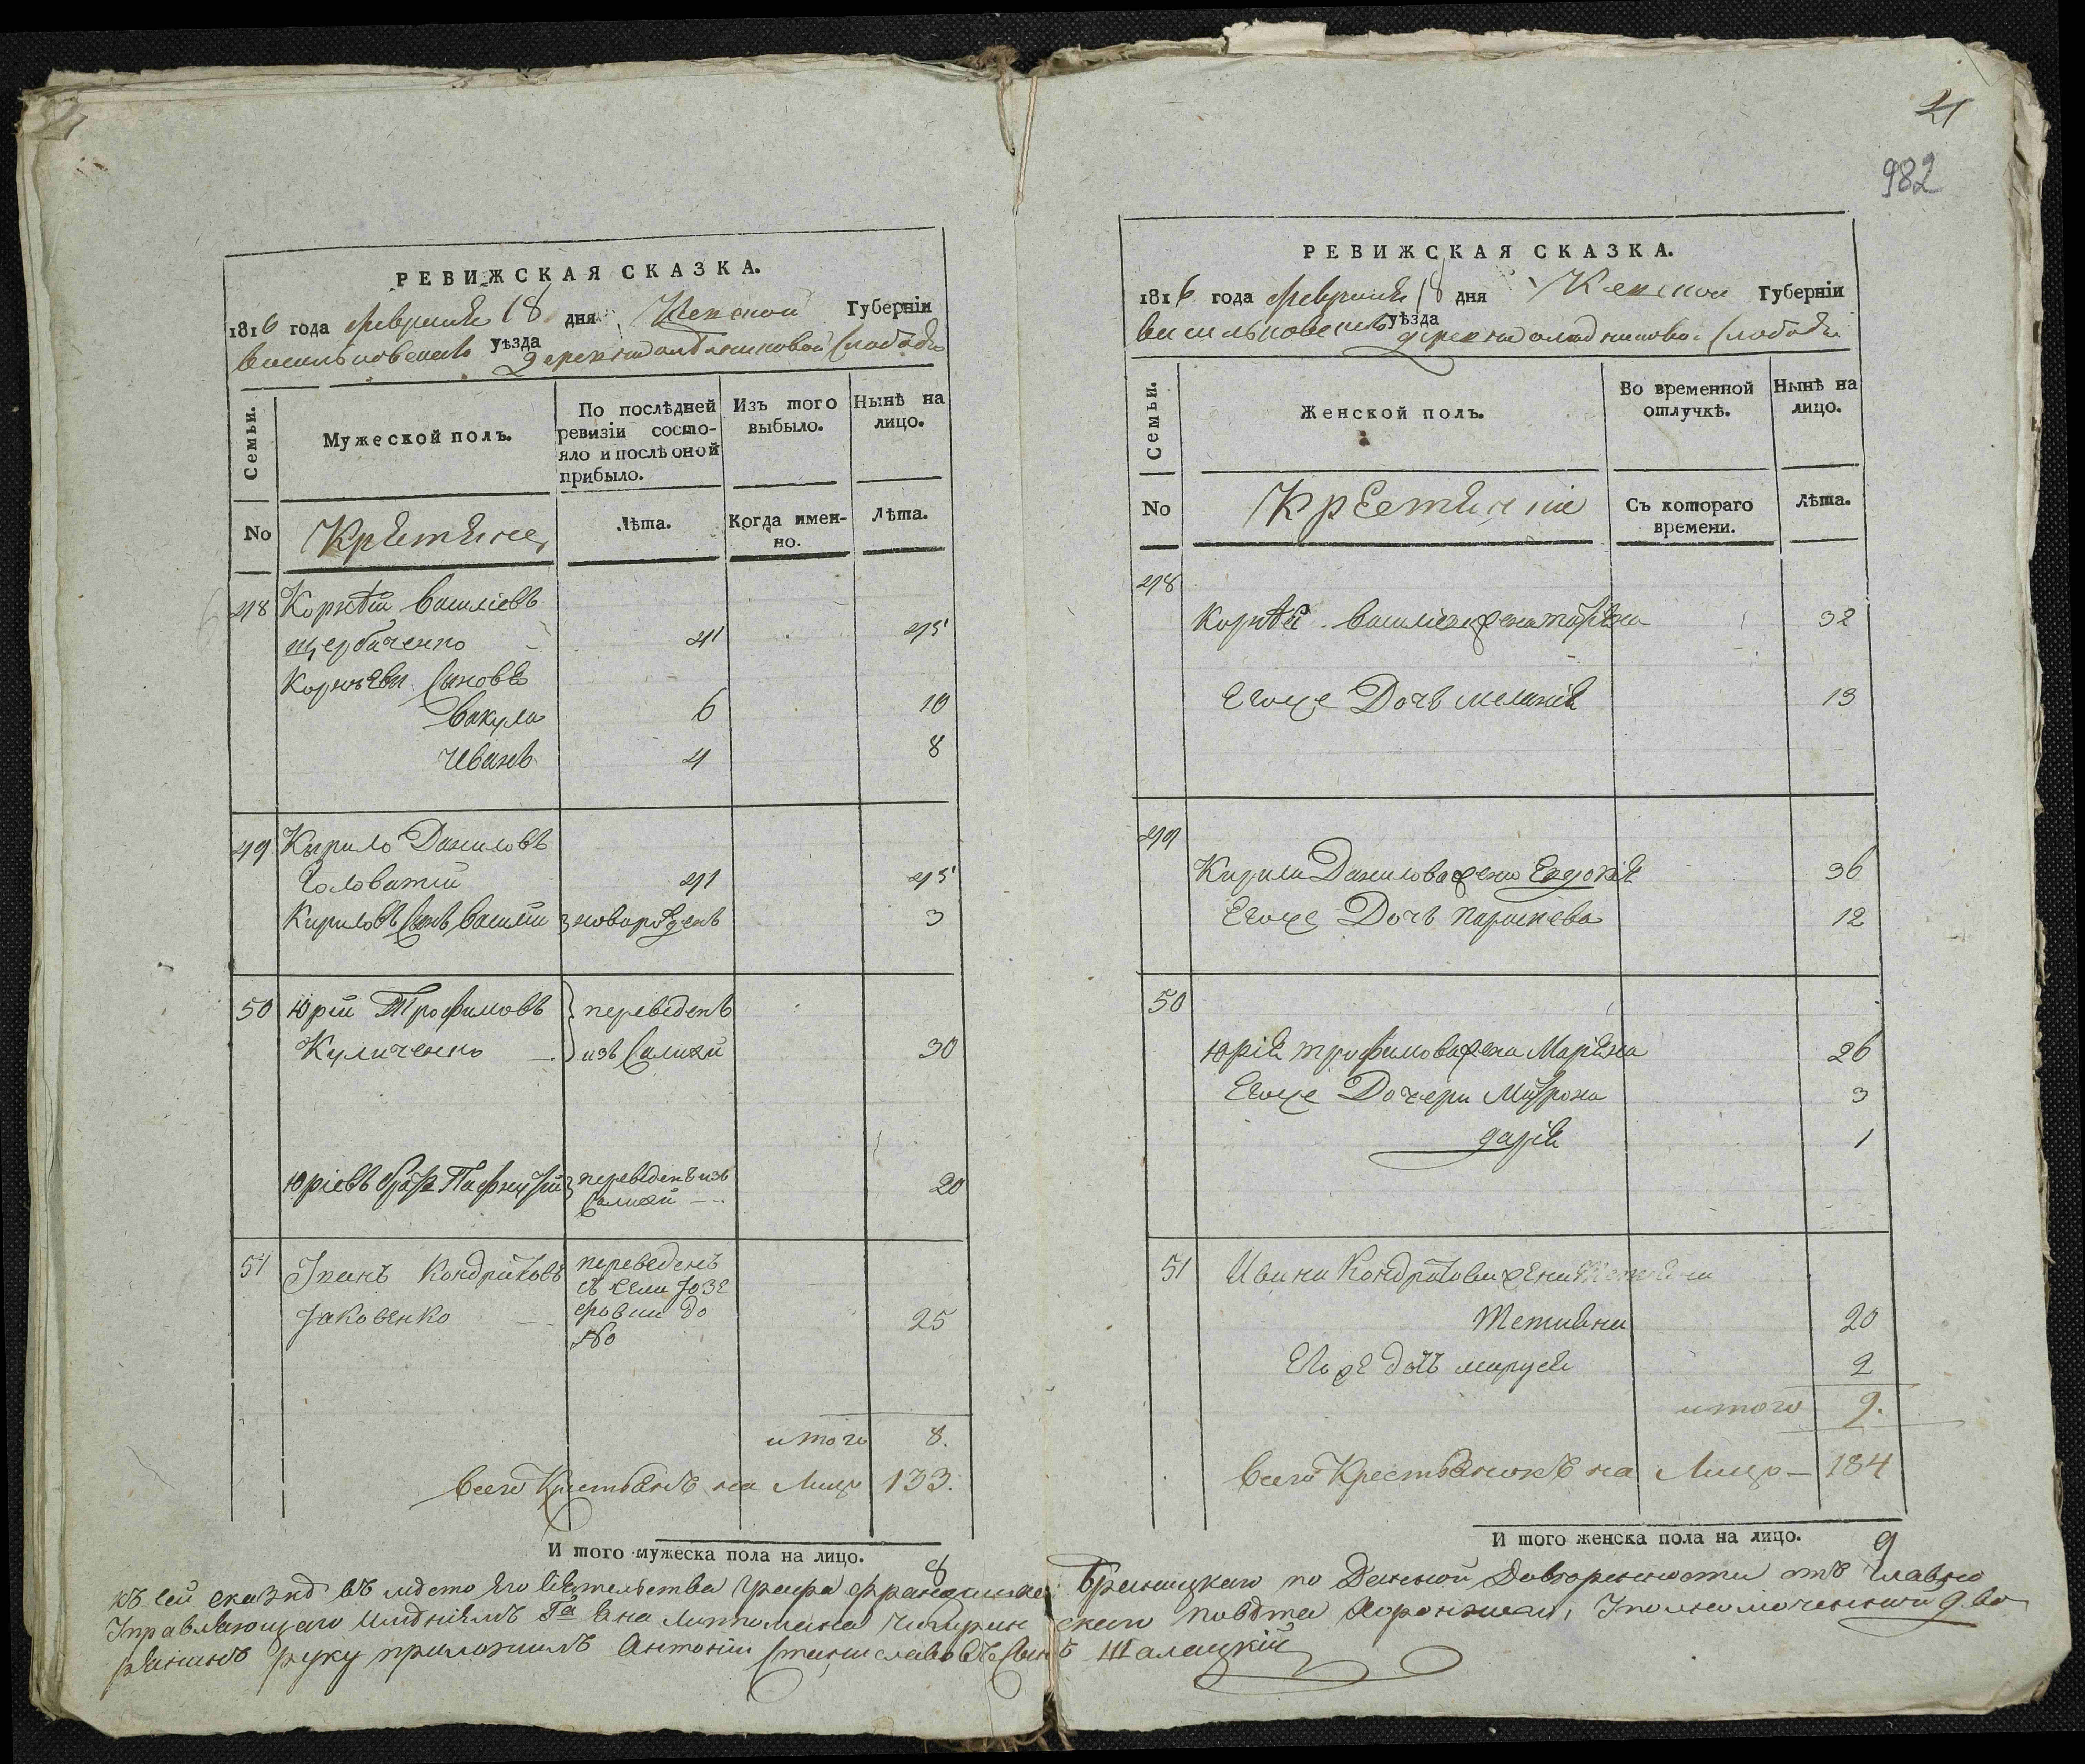 РЕВИЖСКАЯ СКАЗКА.
1816 года февраля 18 дня Кіевской Губерніи
васильковскаго уѣзда деревни Слободы
Семьи.
Мужеской полъ.
По послѣдней ревизіи состо-
яло и послѣ оной
прибыло.
Изъ того
выбыло.
Нынѣ на
лицо.
No
Крестяне
Лѣта.
Когда имен-
но.
Лѣта.
48 Корнѣй василіевъ
щербаченко 41 45
Корнѣеви Сыновя
Вакула 6 10
Иванъ 4 8
49 Кирило Даниловъ
Головатий 41 45
Кириловъ Сынъ васили новорожденъ 3
50 Юрій Трофимовъ переведенъ
Куличенко изъ 30
Юріевъ братъ Пафнутій переведенъ изъ 20
51 Іванъ Кондратовъ переведенъ
съ села Юзе
Јаковенко фовки до 25
No
итого 8.
всего Крестьянъ на Лицо 133.
И того мужеска пола на лицо.
8
21
982
РЕВИЖСКАЯ СКАЗКА.
1816 года февраля 18 дня Кіевской Губерніи
васильковскаго уѣзда деревни Слободы
Семьи.
Женской полъ.
Во временной
отлучкѣ.
Нынѣ на
лицо.
No
Крестянки
Съ котораго
времени.
Лѣта.
48
Корнѣя василіева жена 32
Егоже Дочь меланія 13
49
Кирила Данилова жена Евдокія 36
Егоже Дочь параскева 12
50
Юрія трофимова жена Маріяна 26
Егоже Дочери Матрона 3
дарія 1
51 Ивана Кондратова жена
Тетияна 20
Его же дочъ маруся 2
итого 9.
всего Крестьянокъ на Лицо — 184
И того женска пола на лицо.
9
къ сей сказкѣ въ мѣсто его Сіятельства Графа Францишка Браницкаго по Данной Довѣренности отъ Главно
Управляющаго имѣніемъ Га Яна Литтомана чигирин скаго повѣта Хоронжаго, Уполномоченный дво
рянинъ руку приложилъ Антоній Станиславовъ Сынъ Шалацкій